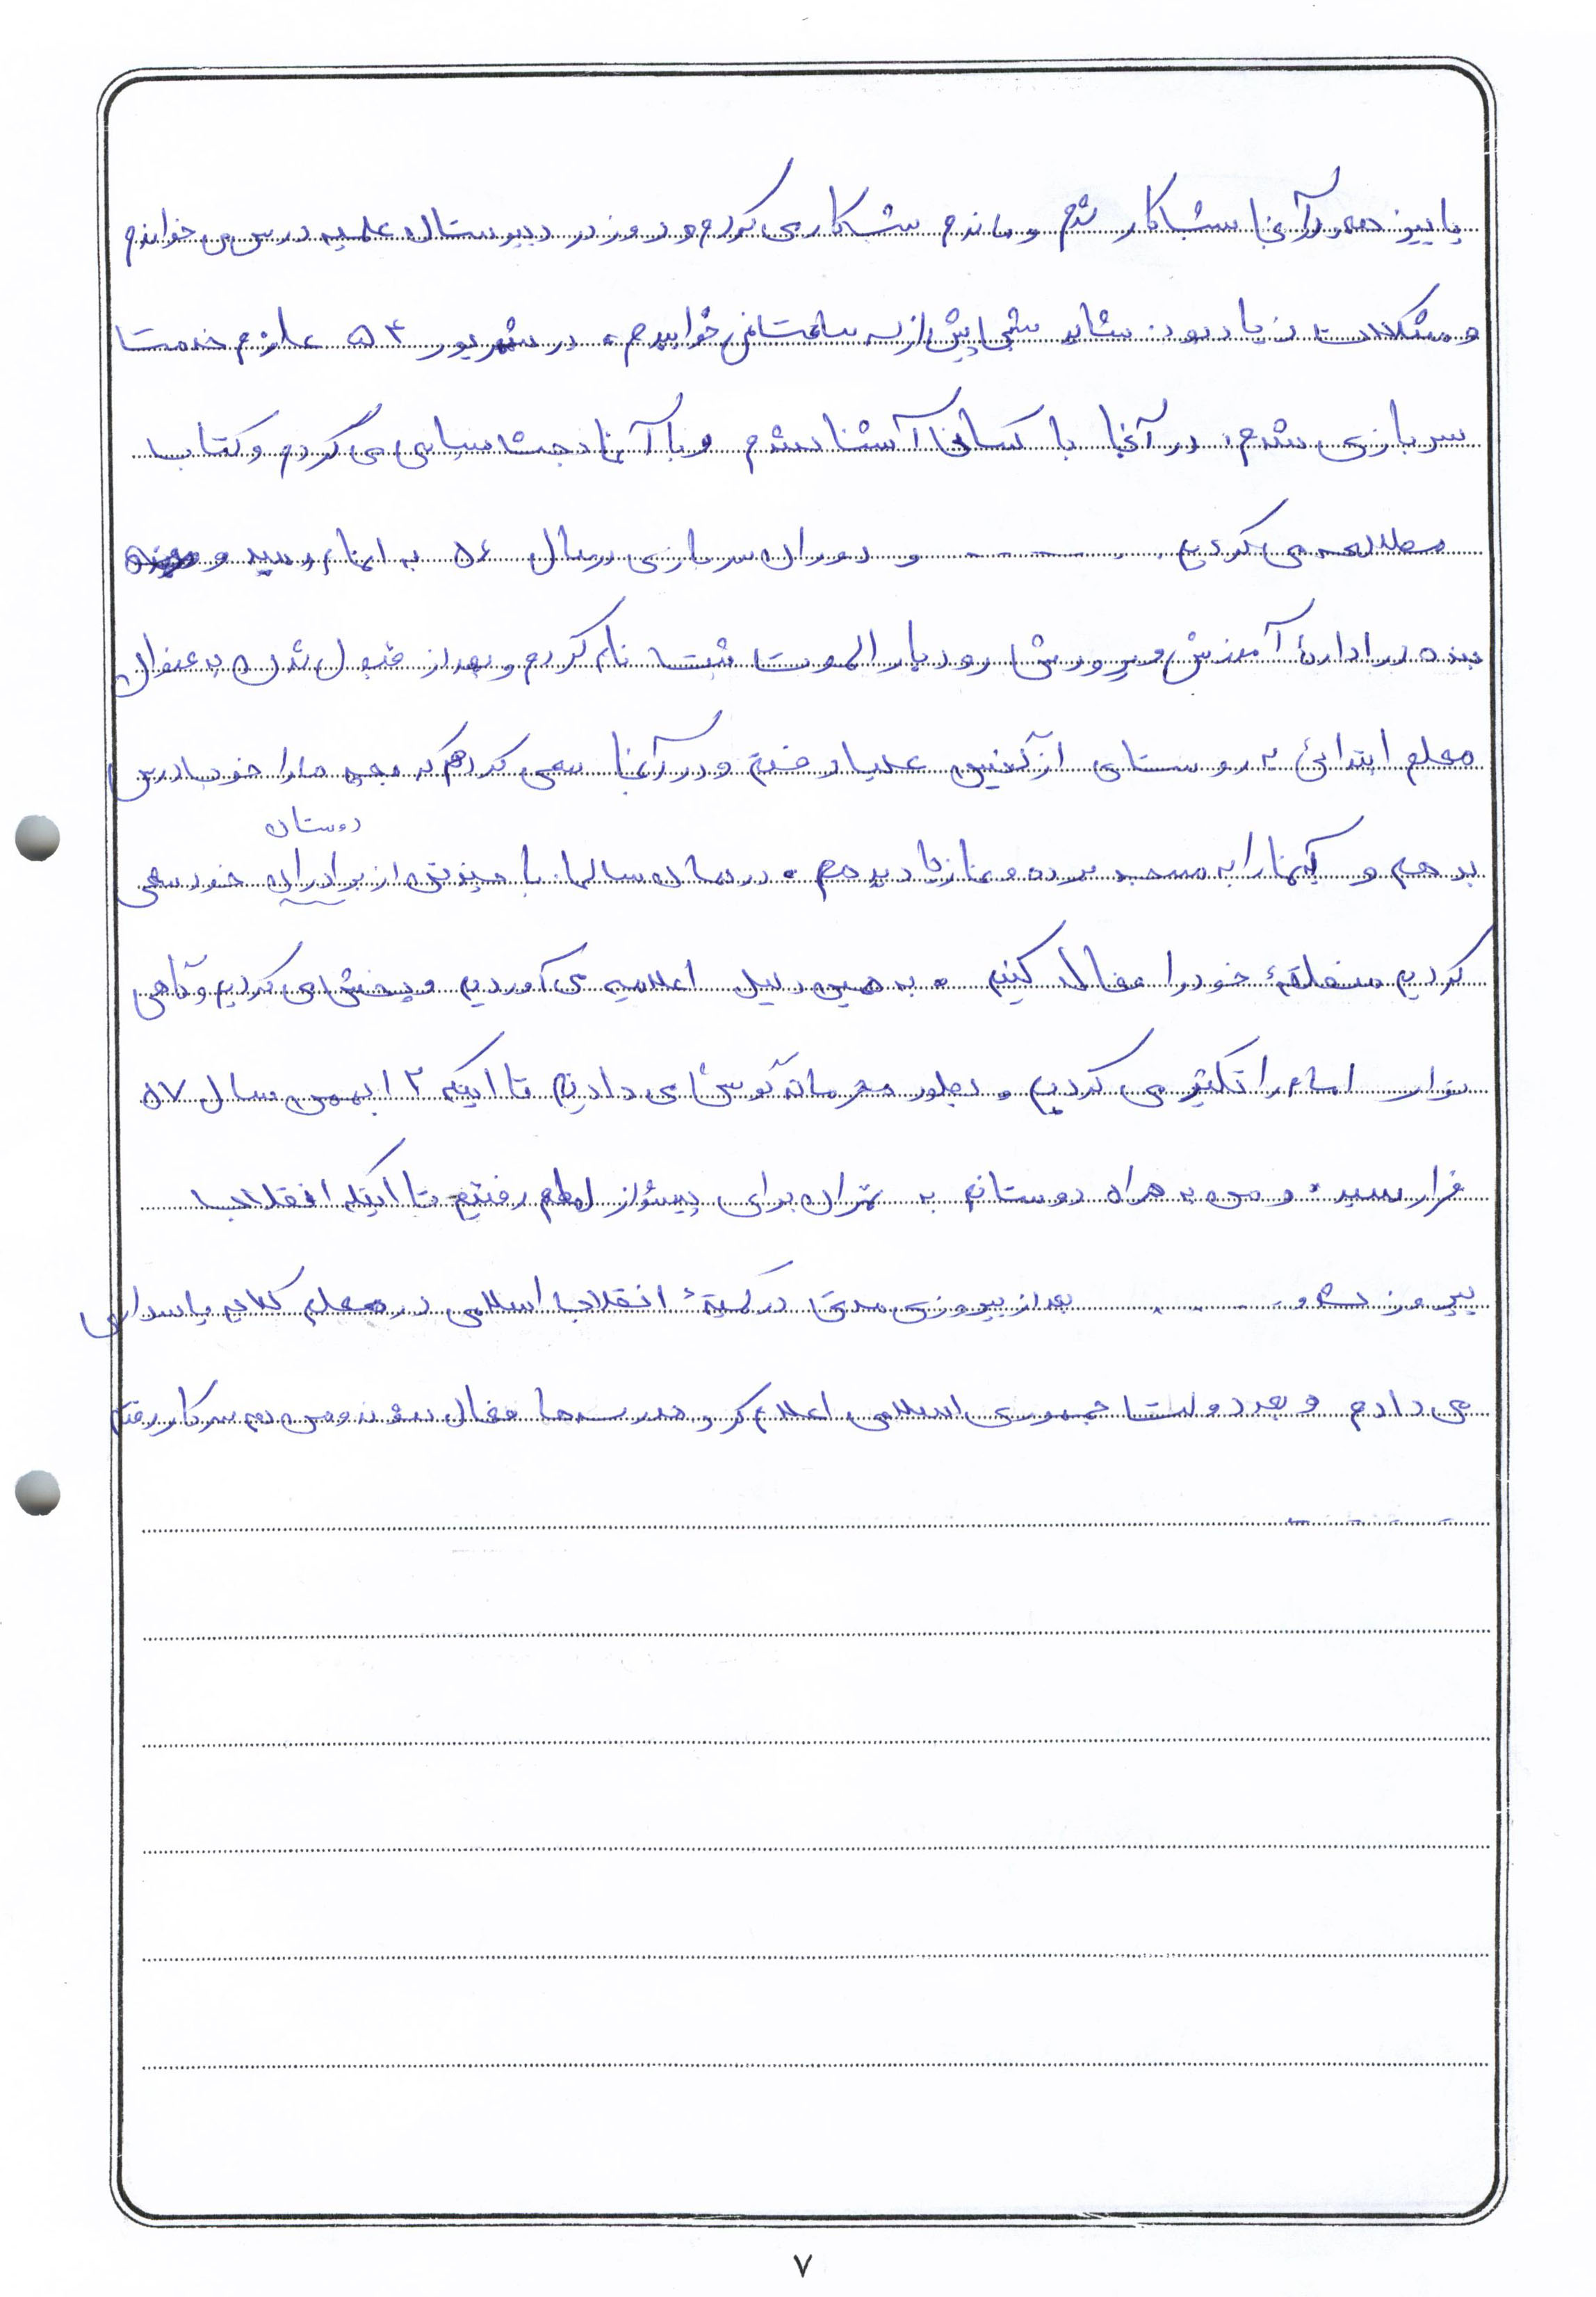 پاییز در آنجا شبکار شدم و ماندم شبکار می کردم و روز در دبیرستان علمیه درس می خواندم
و مشکلات زیاد بود شاید شبی بیش از سه ساعت نمی خوابیدم، در شهریور ۵۴ عازم خدمت
سربازی شدم، در آنجا با کسانی آشنا شدم و با آنها بحث سیاسی می کردم و کتاب
مطالعه می کردیم ........ و دوران سربازی در سال ۵۶ به اتمام رسید و
بنده در اداره آموزش و پرورش رودبار الموت ثبت نام کردم و بعد از قبول شدن به عنوان
معلم ابتدائی به روستای علیا رفتم و در آنجا سعی کردم که بچه ها را خوب درس
دوستان
بدهم و آنها را به مسجد برده و نماز یاد بدهم. در همان سالها با چند تن از برادران خود سعی
کردیم منطقهٔ خود را فعال کنیم. به همین دلیل اعلامیه می آوردیم و پخش می کردیم و گاهی
نوار امام را تکثیر می کردیم. بطور محرمانه گوش می دادیم تا اینکه ۱۲ بهمن سال ۵۷
فرا رسید. و من به همراه دوستانم به تهران برای پیشواز امام رفتیم تا اینکه انقلاب
پیروز شد و ........ بعد از پیروزی مدتی در کمیتهٔ انقلاب اسلامی در معلم کلایه پاسداری
می دادم و بعد دولت جمهوری اسلامی اعلام کرد مدرسه ها فعال شوند و من هم سر کار رفتم
.....
۷